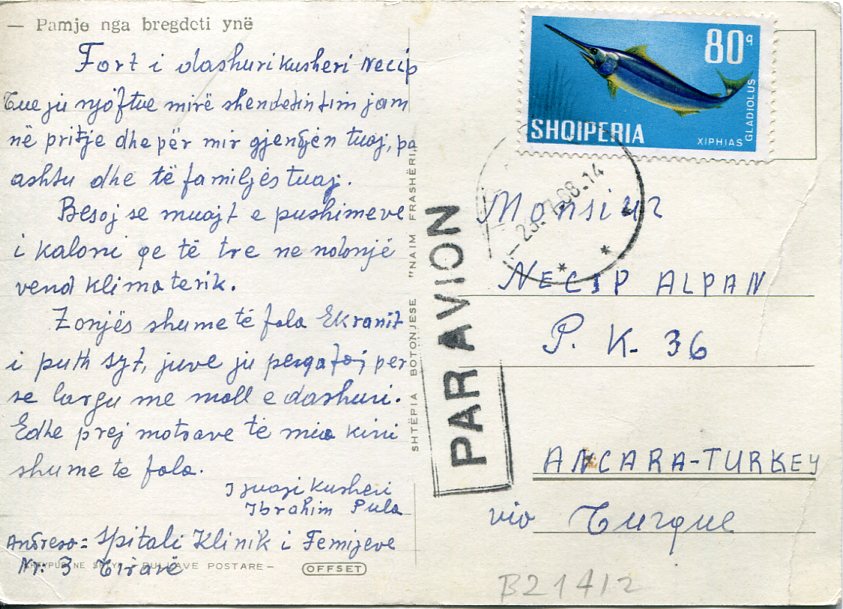 — Pamje nga bregdeti ynë
Fort i dashuri kusheri Necip
Tue ju njoftue mirë shendetin tim jam
në pritje dhe për mir gjendjen tuaj, pa
ashtu dhe të familjës tuaj.
Besoj se muajt e pushimeve
i kaloni qe të tre ne ndonjë
vend klimaterik.
Zonjës shume të fala Ekranit
i puth syt, juve ju perqafoj per
se largu me mall e dashuri.
Edhe prej motrave të mia kini
shume te fala.
Juaji Kusheri
Ibrahim Pula
Andresa = Spitali Klinik i Femijeve
Nr. 3 Tiranë
POSTARE —
OFFSET
SHTËPIA BOTONJESE "NAIM FRASHËRI,,
PAR AVION
80q
SHQIPERIA
XIPHIAS GLADIOLUS
68.-14
Monsiur
NECIP ALPAN
P. K. 36
ANCARA-TURKEY
vio Turque
B21412